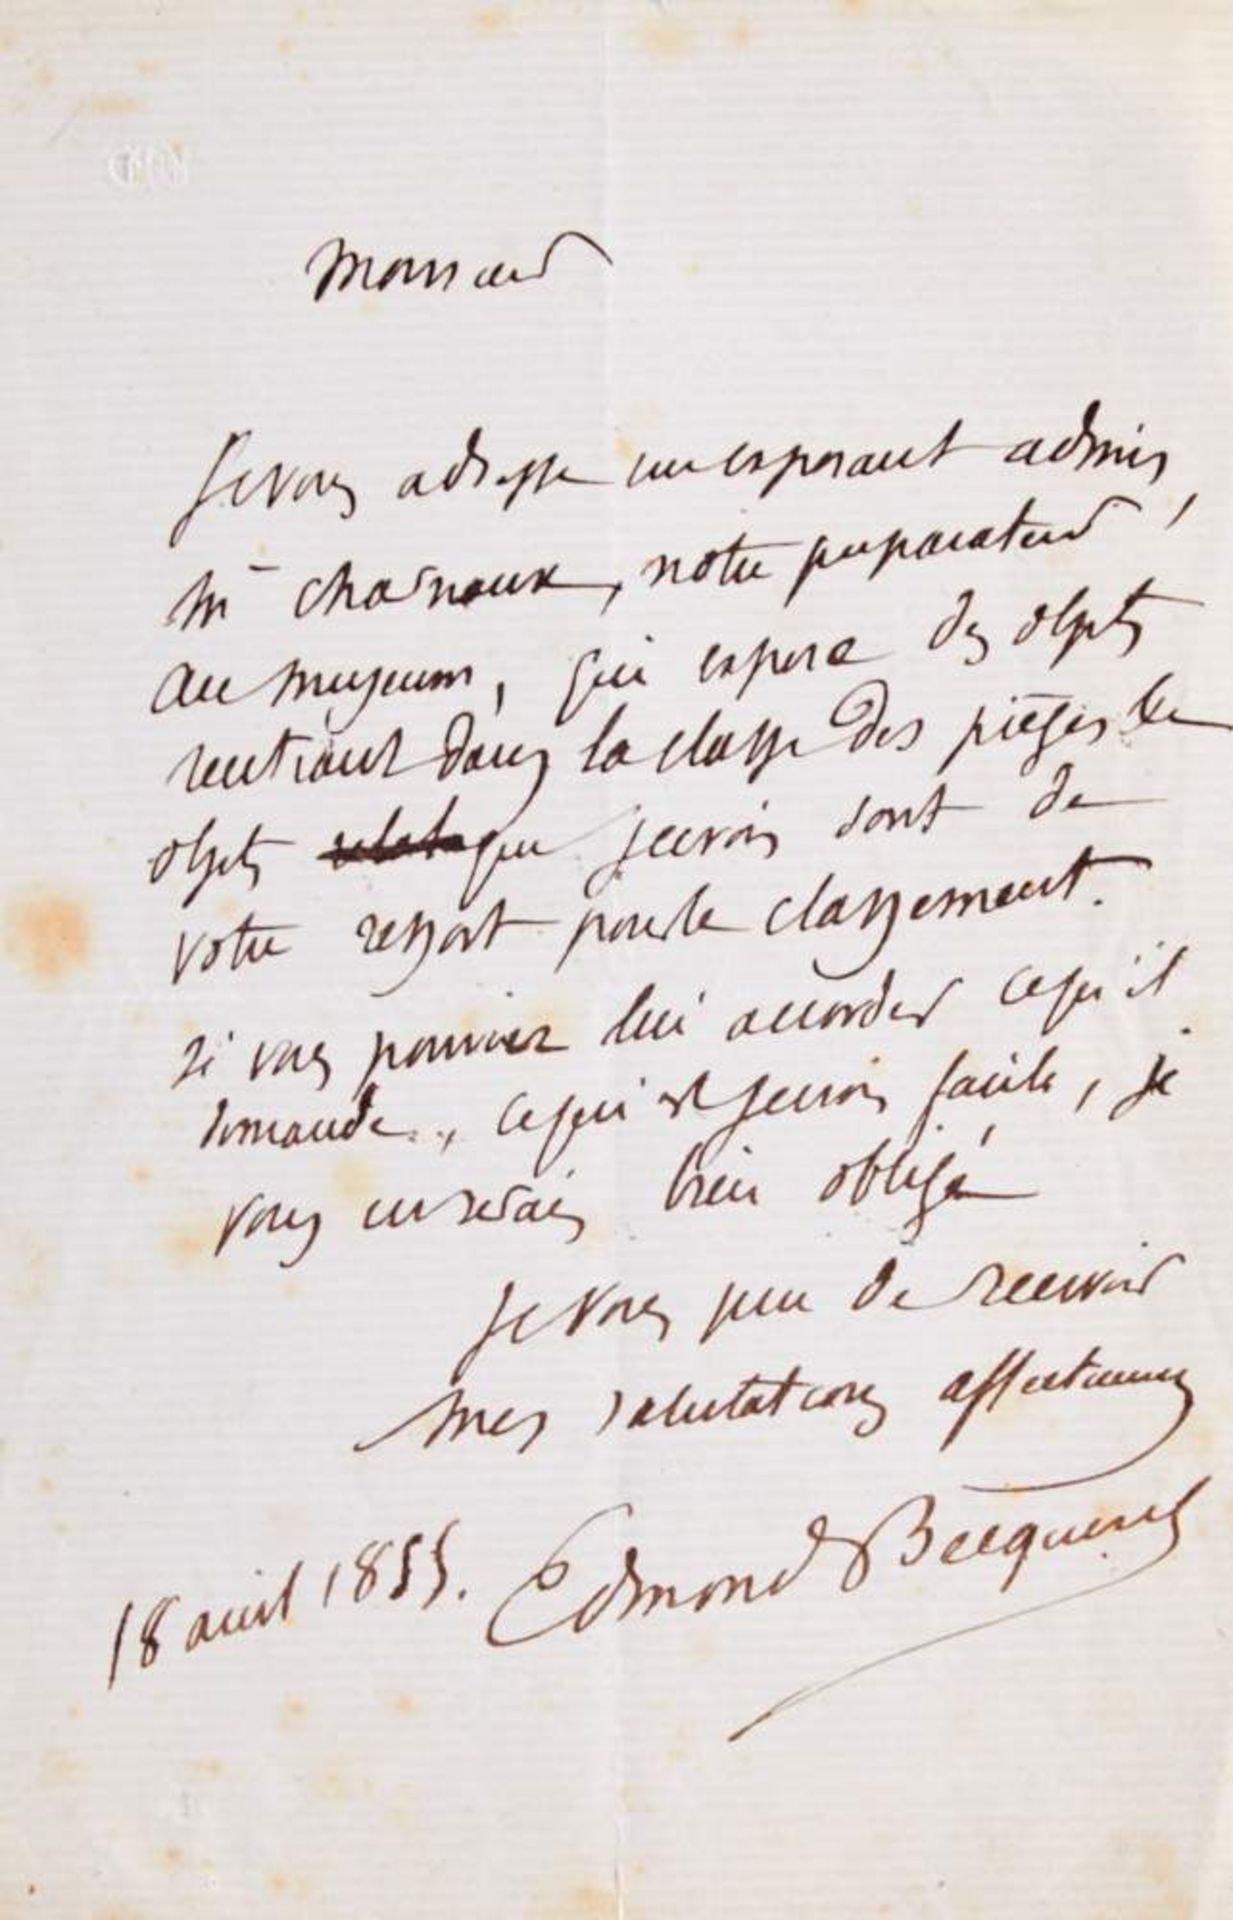 Monsieur
Je vous adresse un exposant admis,
Mr charnaux, notre preparateur
au museum, qui expose des objets
rentrant dans la classe des piéges les
objets que je crois sont de
votre ressort pour le classement.
si vous pouviez lui accorder ce qu'il
demande, ce qui est je crois facile, je
vous en serais bien obligé
Je vous prie de recevoir
mes salutations affectueuses
Edmond Becquerel
18 avril 1855.